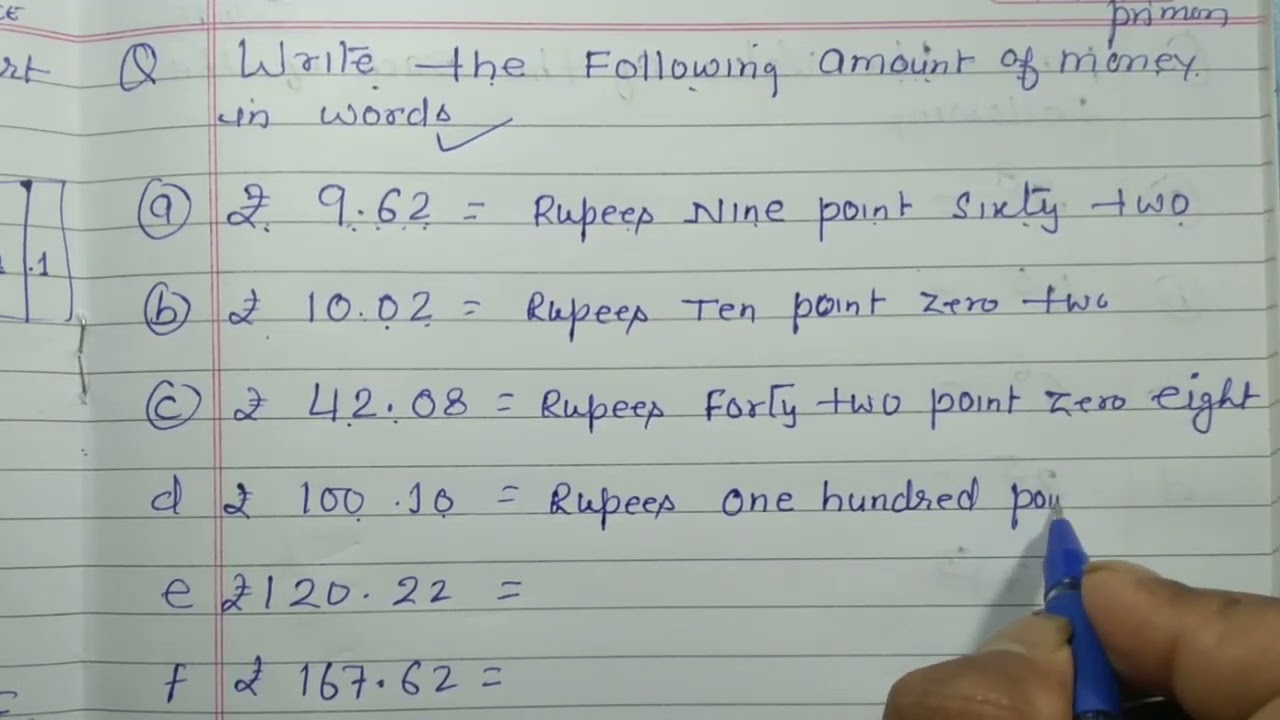 primon
Q Write the Following amount of money
in words
a ₹ 9.62 = Rupees Nine point Sixty two
b ₹ 10.02 = Rupees Ten point Zero two
c ₹ 42.08 = Rupees Forty two point Zero eight
d ₹ 100.10 = Rupees One hundred poi
e ₹120.22 =
f ₹ 167.62 =
.1